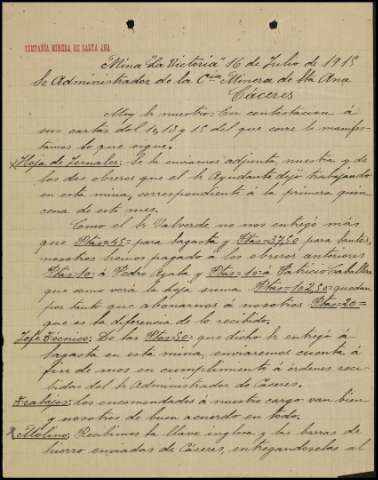 COMPAÑÍA MINERA DE SANTA ANA
Mina "La Victoria" 16 de Julio de 1915
Sr Administrador de la Cia Minera de Sta Ana
Cáceres
Muy Sr nuestro: En contestacion á
sus cartas del 12, 13 y 15 del que corre le manifes-
tamos lo que sigue.
Hoja de Jornales: Se la enviamos adjunta, nuestra y de
los dos obreros que el Sr Ayudante dejó trabajando
en esta mina, correspondiente á la primera quin-
cena de este mes.
Como el Sr Valverde no nos entregó más
que Ptas= 45= para Sagasta y Ptas= 37,50 para
nosotros hemos pagado á los obreros anteriores
Ptas= 10= á Pedro Ayala y Ptas= 10= á Patricio
que como verá la hoja suma Ptas= 102,50= quedan
por tanto que abonarnos á nosotros Ptas= 20=
que es la diferencia de lo recibido.
Jefe Técnico: De las Ptas 50= que dicho Sr entregó á
Sagasta en esta mina, enviaremos cuenta á
fin de mes en cumplimiento á órdenes reci-
bidas del Sr Administrador de Cáceres.
Trabajos: los encomendados á nuestro cargo van bien
y nosotros de buen acuerdo en todo.
Molino: Recibimos la llave inglesa y las barras de
hierro enviadas de Cáceres, entregandoselas al